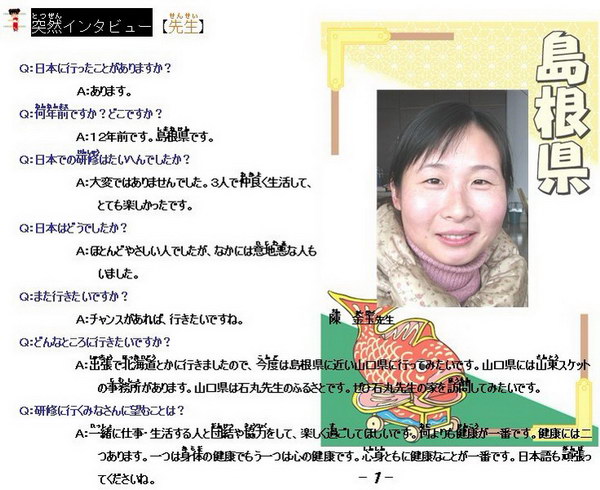 突然インタビュー【先生】
Q:日本に行ったことがありますか？
A:あります。
Q:何年前ですか？どこですか？
A:１２年前です。島根県です。
Q:日本での研修はたいへんでしたか？
A:大変ではありませんでした。３人で仲良く生活して、
とても楽しかったです。
Q:日本はどうでしたか？
A:ほとんどやさしい人でしたが、なかには意地悪な人も
いました。
Q:また行きたいですか？
A:チャンスがあれば、行きたいですね。
陳　金玉先生
Q:どんなところに行きたいですか？
A:出張で北海道とかに行きましたので、今度は島根県に近い山口県に行ってみたいです。山口県には山東スケット
の事務所があります。山口県は石丸先生のふるさとです。ぜひ石丸先生の家を訪問してみたいです。
Q:研修に行くみなさんに望むことは？
A:一緒に仕事・生活する人と団結や協力をして、楽しく過ごしてほしいです。何よりも健康が一番です。健康には二
つあります。一つは身体の健康でもう一つは心の健康です。心身ともに健康なことが一番です。日本語も頑張っ
てくださいね。
島根県
－ 1 －